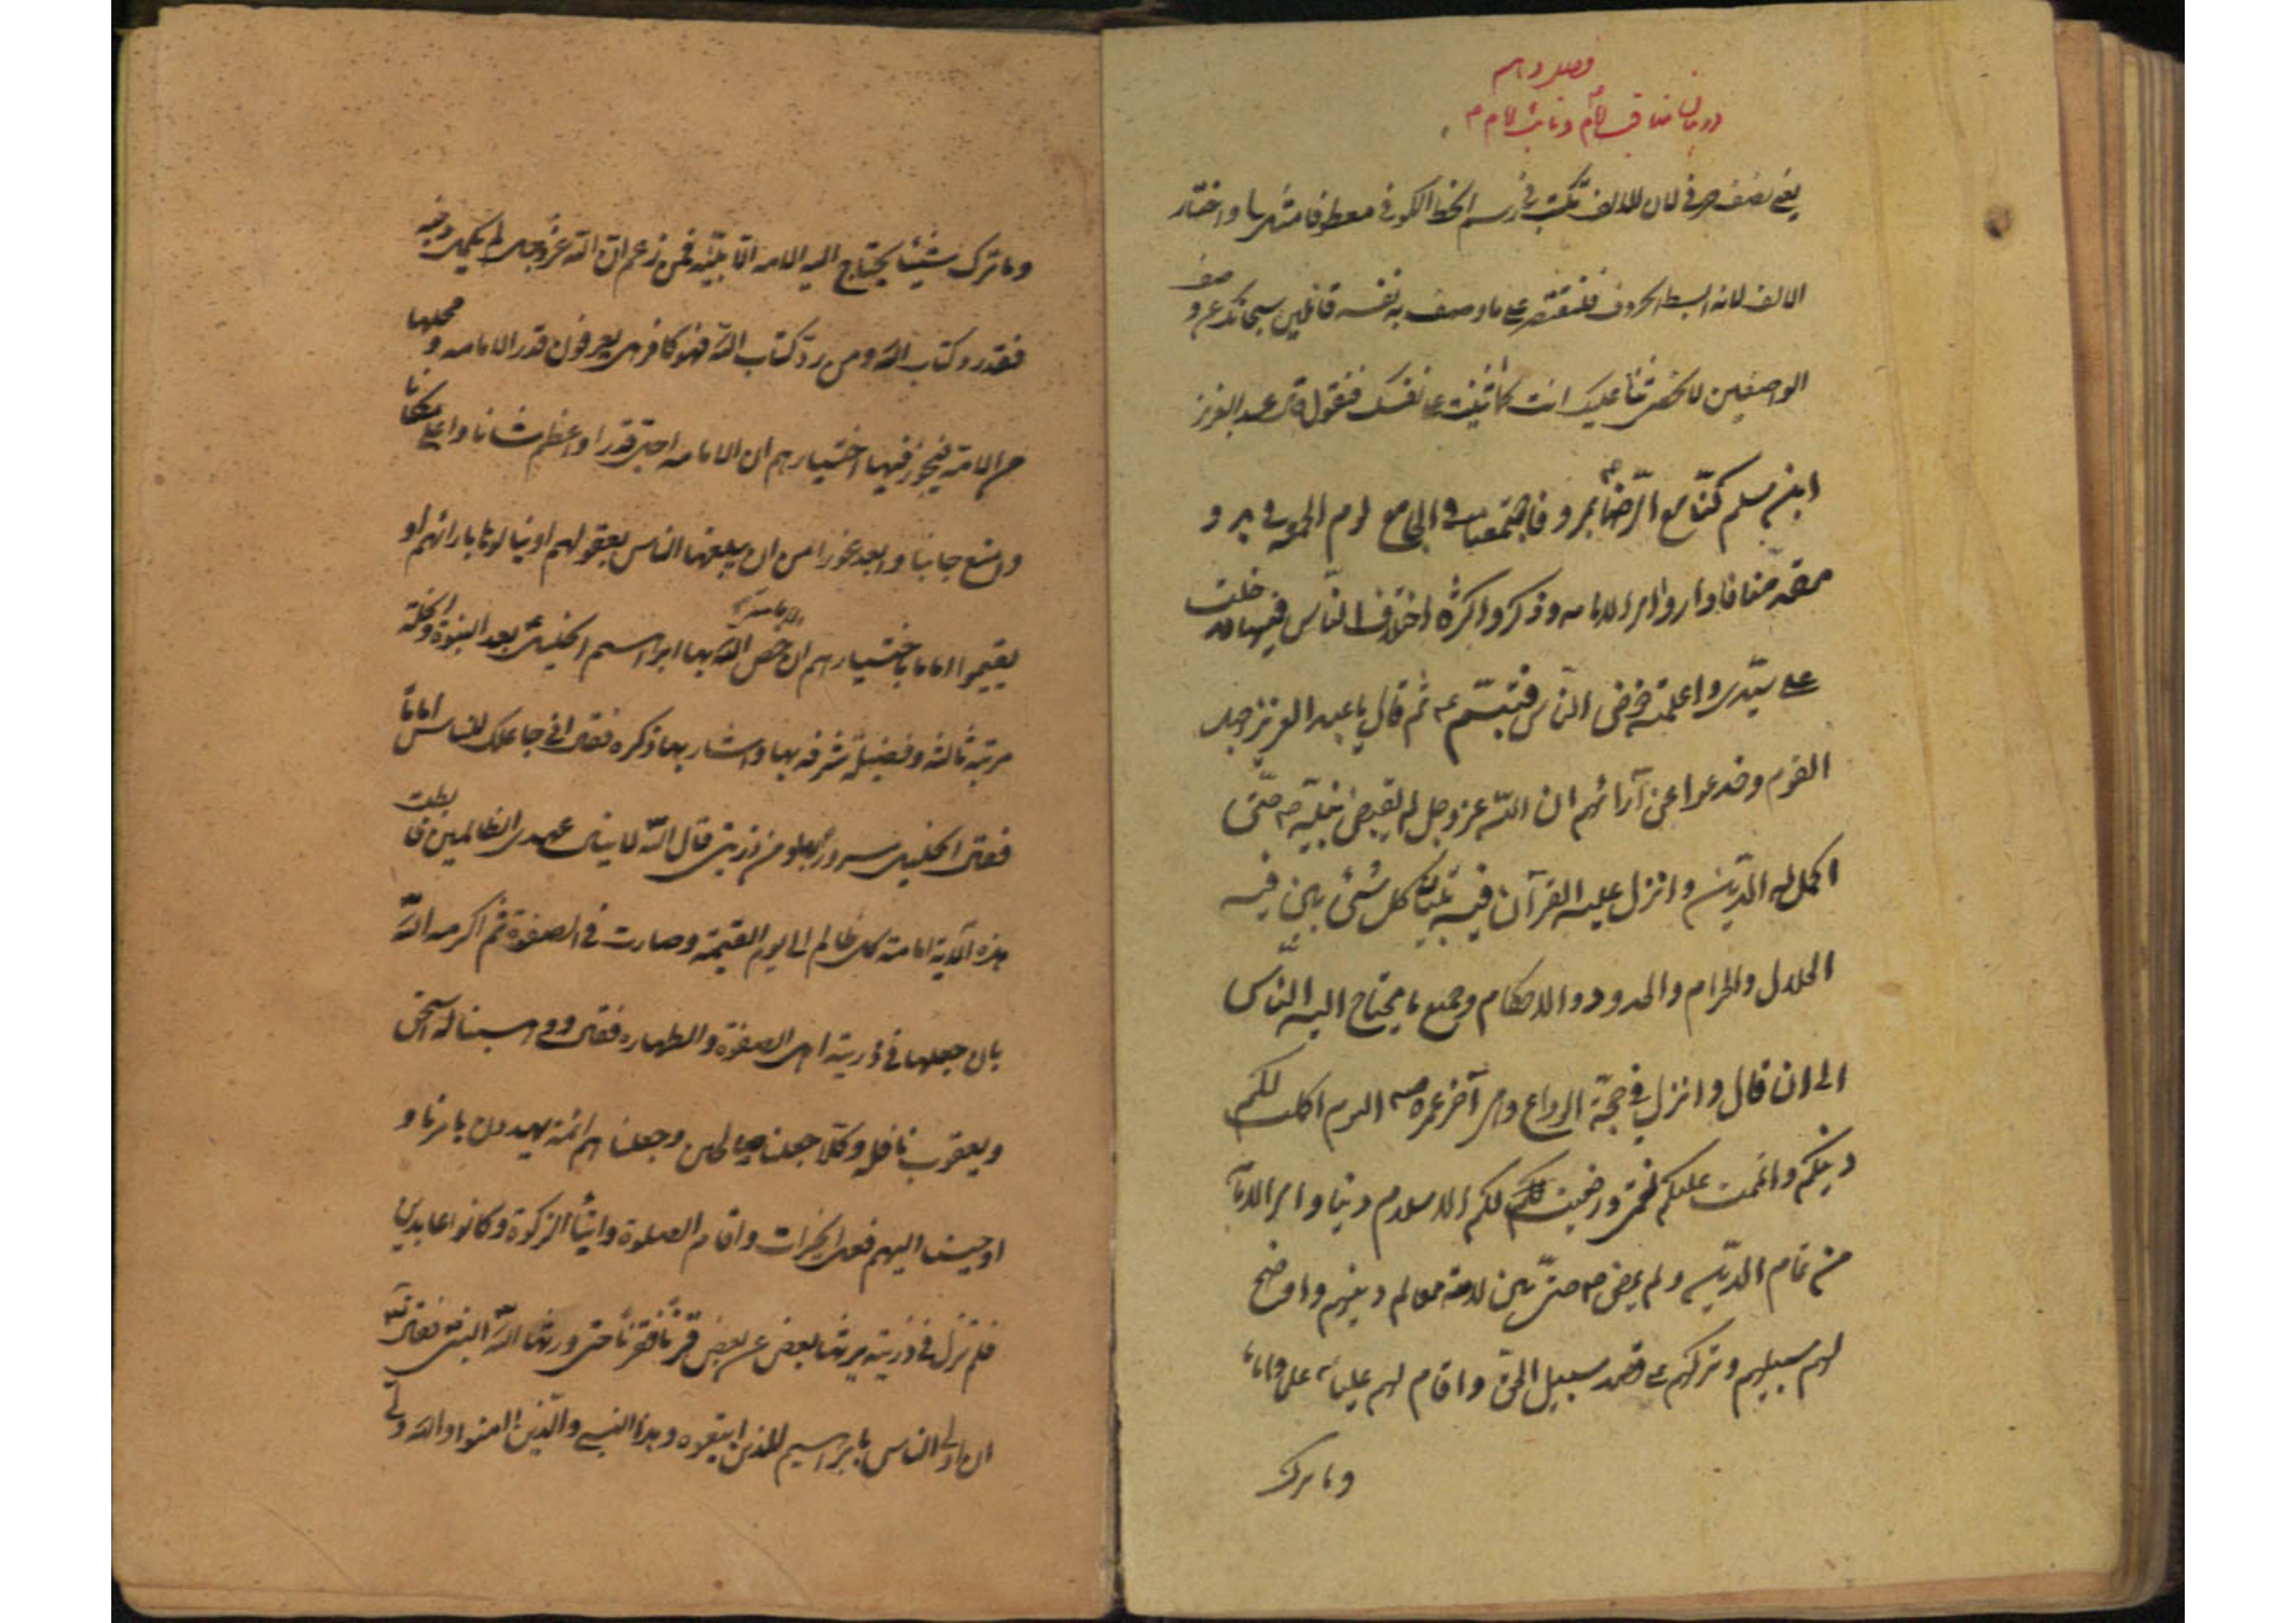 فصل دهم
در بیان مناقب امام و نائب امام
یعنی نصف حرف لان للالف تکتب فی رسم الخط الکوفی معطوفا واختار
الالف لانه ابسط الحروف فلنقتصر علی ما وصف به نفسه قائلین سبحانک عن وصف
الواصفین لا نحصی ثناء علیک انت کما اثنیت علی نفسک فنقول قال عبدالعزیز
ابن مسلم کنّا مع الرّضا بمرو فاجتمعنا فی الجامع یوم الجمعه فی بدو
مقدمنا فاداروا امر الامامه وذکروا کثرة اختلاف النّاس فیها فدخلت
علی سیّدی واعلمته خوض النّاس فتبسّم ثم قال یا عبد العزیز جهل
القوم وخدعوا عن آرائهم ان اللّه عز وجل لم یقبض نبیّه حتّی
اکمل له الدّین وانزل علیه القرآن فیه تبیان کل شئ بین فیه
الحلال والحرام والحدود والاحکام وجمیع ما یحتاج الیه النّاس
الی ان قال وانزل فی حجّة الوداع وهی آخر عمره الیوم اکملت لکم
دینکم واتممت علیکم نعمتی ورضیت لکم الاسلام دینا وامر الامامة
من تمام الدّین ولم یمض حتّی بین لامته معالم دینهم واوضح
لهم سبیلهم وترکهم علی قصد سبیل الحق واقام لهم علیاً علما واماما
وما ترک
وما ترک شیئا یحتاج الیه الامه الّا بیّنه فمن زعم ان اللّه عزّ وجل لم یکمل دینه
فقد رد کتاب اللّه ومن ردّ کتاب اللّه فهو کافر هل یعرفون قدر الامامه ومحلها
من الامّة فیجوز فیها اختیارهم ان الامامه اجلّ قدرا واعظم شانا واعلی مکانا
وامنع جانبا وابعد غورا من ان یبلغها الناس بعقولهم او ینالوها بارائهم او
یقیموا اماما باختیارهم ان الامامة خص اللّه بها ابراهیم الخلیل بعد النبوة والخلّة
مرتبة ثالثة وفضیلة شرفه بها واشار بها ذکره فقال انی جاعلک للناس اماماً
فقال الخلیل سرورا بها ومن ذریتی قال اللّه لا ینال عهدی الظالمین فابطلت
هذه الآیة امامة کل ظالم الی یوم القیمة وصارت فی الصفوة ثم اکرمه اللّه
بان جعلها فی ذریته اهل الصفوة والطهاره فقال ووهبنا له اسحق
ویعقوب نافلة وکلّا جعلنا صالحین وجعلناهم ائمة یهدون بامرنا و
اوحینا الیهم فعل الخیرات واقام الصلوة وایتاء الزکوة وکانوا عابدین
فلم تزل فی ذریته یرثها بعض عن بعض قرناً فقرناً حتی ورثها اللّه النبی فقال
ان اولی الناس بابراهیم للذین اتبعوه وهذا النبی والّذین امنوا واللّه ولی